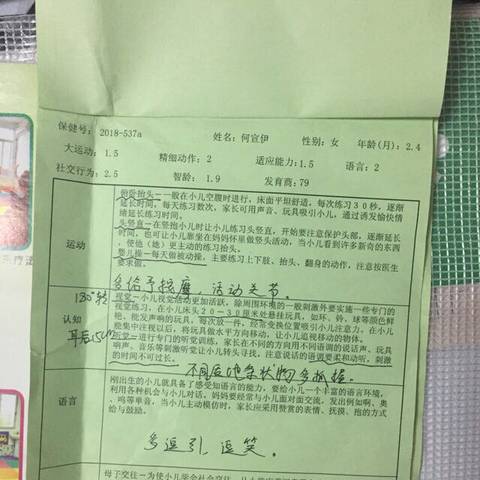 保健号：2018-537a 姓名：何宣伊 性别：女 年龄(月)：2.4
大运动：1.5 精细动作：2 适应能力：1.5 语言：2
社交行为：2.5 智龄：1.9 发育商：79
运动
俯卧抬头－一般在小儿空腹时进行，床面平坦舒适，每次练习30秒，逐渐
延长时间，每天练习数次，家长可用声音、玩具吸引小儿，通过诱发愉快情
绪延长练习时间。
头竖直－在竖抱小儿时让小儿练习头竖直，开始要注意保护头部，逐渐延长
时间，也可让小儿靠坐在妈妈怀里做竖头活动，当小儿看到许多新奇的东西
，使他（她）更主动的练习抬头。
婴儿操－每天做被动操，主要练习上下肢、抬头、翻身的动作，注意按医生
要求做。
多给予按摩，活动关节。
180°转
认知
耳后15cm
视觉－小儿视觉活动更加活跃，除周围环境的一般刺激外要实施一些专门的
视觉训练，在小儿床头20－30厘米处悬挂玩具，如环、铃、球等颜色鲜
艳、能发声响的玩具，每次放一件，经常变换位置吸引小儿注意力。在小儿
能集中注视以后，将玩具做水平方向移动，让小儿追视移动的物体。
听觉－进行专门的听觉训练，家长在不同的方向用不同语调的说话声、玩具
响声、音乐等刺激听觉让小儿转头寻找，注意说话的语调要柔和动听，刺激
的时间不可过长。
不同质地条状物多抓握
语言
刚出生的小儿就具备了感受知语言的能力，要给小儿一个丰富的语言环境，
利用各种机会与小儿对话，妈妈要经常与小儿面对面交流，发出例如啊、奥
、呜等单音，当小儿主动模仿时，家长应采用赞赏的表情、抚摸、抱的方式
给与鼓励。
多逗引，逗笑。